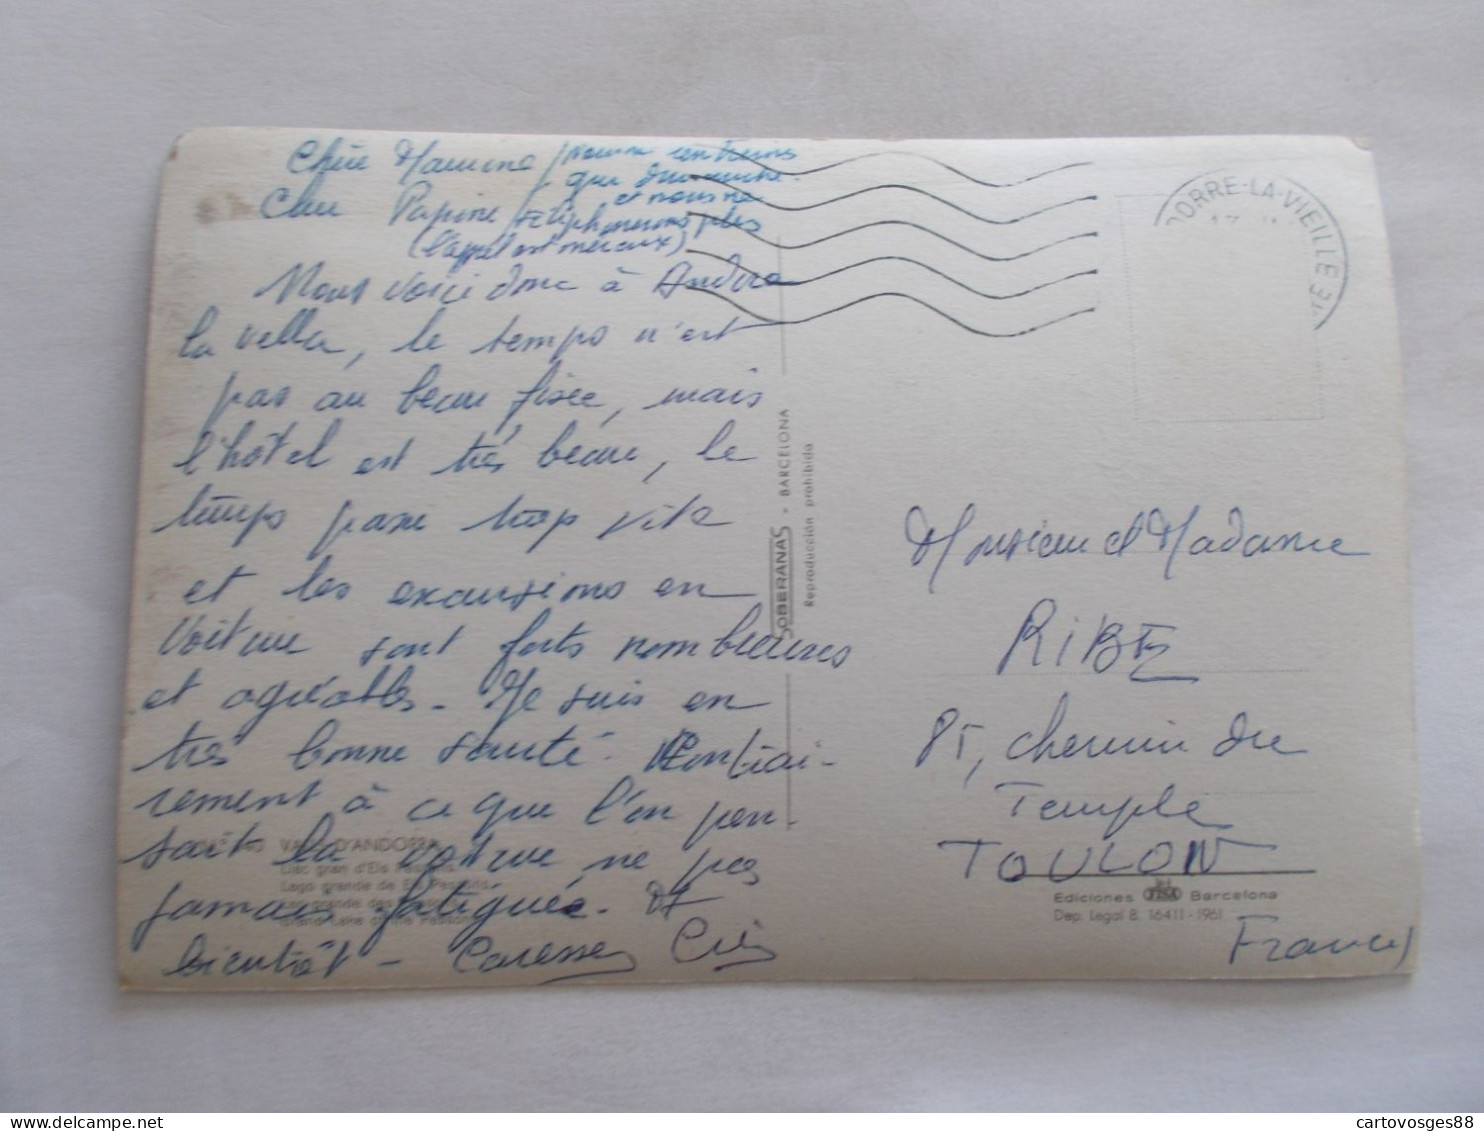 Chère Mamone
Cher Papine
nous rentrons
que dimanche.
et nous ne
téléphonerons plus
(l'appel est onéreux)
Nous voici donc à Andorra
la vella, le temps n'est
pas au beau fixe, mais
l'hôtel est très beau, le
temps passe trop vite
et les excursions en
voiture sont forts nombreuses
et agréables - Je suis en
très bonne santé. Contrai-
rement à ce que l'on pen-
sait la voiture ne pas
jamais fatiguée. A
bientôt - Caresses
VALLS D'ANDORRA
Llac gran d'Els Pessons
Lago grande de Els Pessons
Grand Lake of the Pessons
SOBERANAS - BARCELONA
Reproducción prohibida
DORRE-LA-VIEILLE
Monsieur et Madame
RIBE
85, chemin du
Temple
TOULON
Ediciones FISA Barcelona
Dep. Legal B. 16411 - 1961
France)
cartovosges88